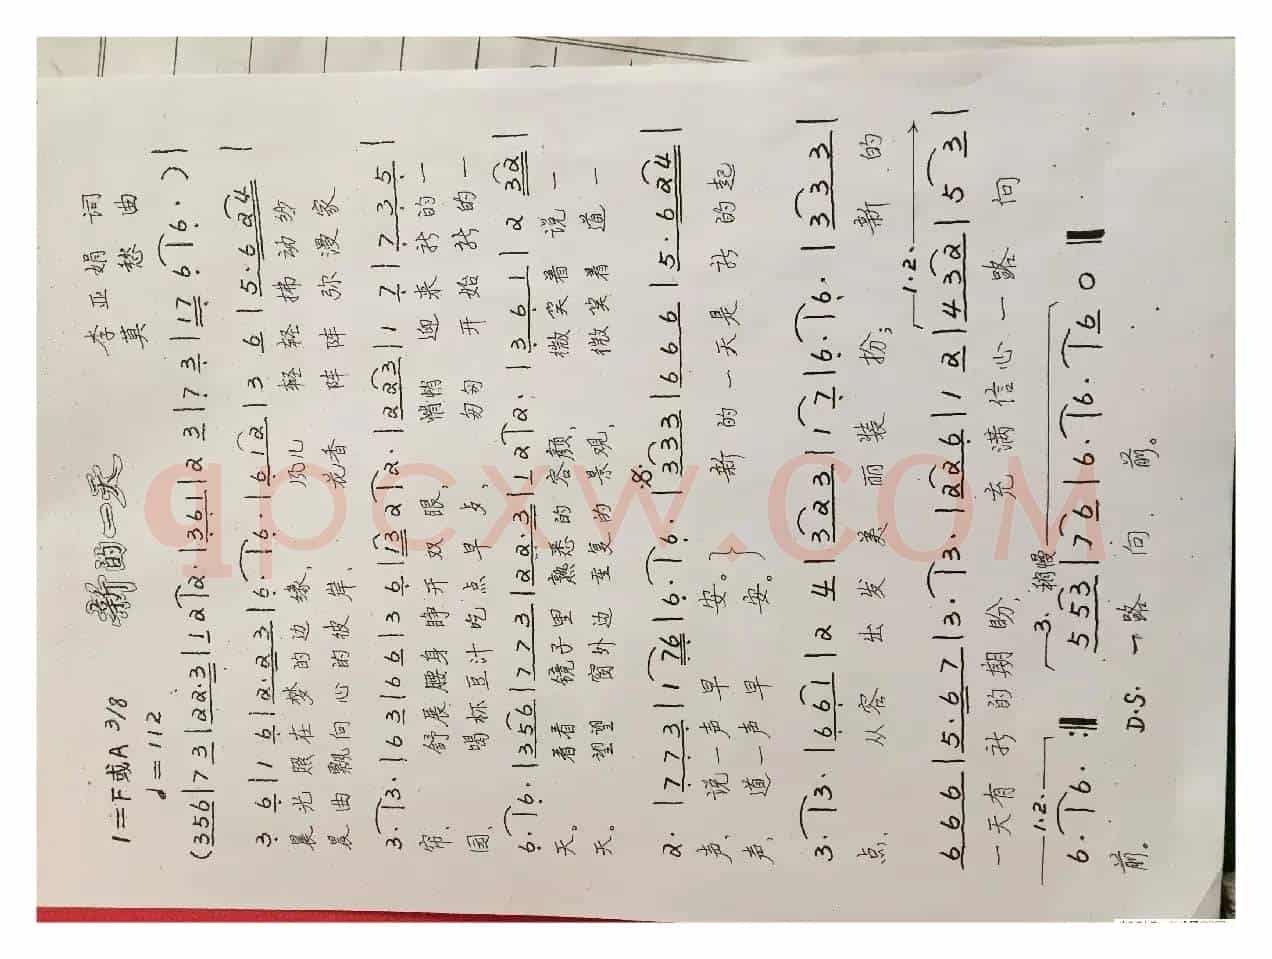 新的一天
1=F或A 3/8
♩=112
李亚娟 词
莫愁 曲
(356|73|22·3|12|2|361|23|73|17|6|6·)|
36|16|2·23|6·|6·|612|36|5·624|
晨光照在梦的边缘, 风儿 轻轻拂动纱
晨曲飘向心的彼岸, 花香 阵阵弥漫家
3·|3·|63|66|36|132|2·|223|17|735|
帘. 舒展腰身睁开双眼, 悄悄 迎来新的一
园, 喝杯豆汁吃点早点, 匆匆 开始新的一
6·|6·|356|773|22·3|12|2·|361|232|
天。 看看镜子里熟悉的容颜, 微笑着说一
天。 望望窗外边重复的景观, 微笑着道一
2·|773|176|6·|6·|333|666|5·624|
声, 说一声早安。 新的一天是新的起
声, 道一声早安。
3·|3·|661|24|323|17|6·|6·|333|
点, 从容出发美丽装扮; 新的
1.2.
666|5·67|3·|3·|226|12|432|53|
一天有新的期盼, 充满信心一路向
1.2. 3. 稍慢
6·|6·:‖ 553|76|6·|6·|60‖
前。 D.S. 一路向前。
qpcxw.com